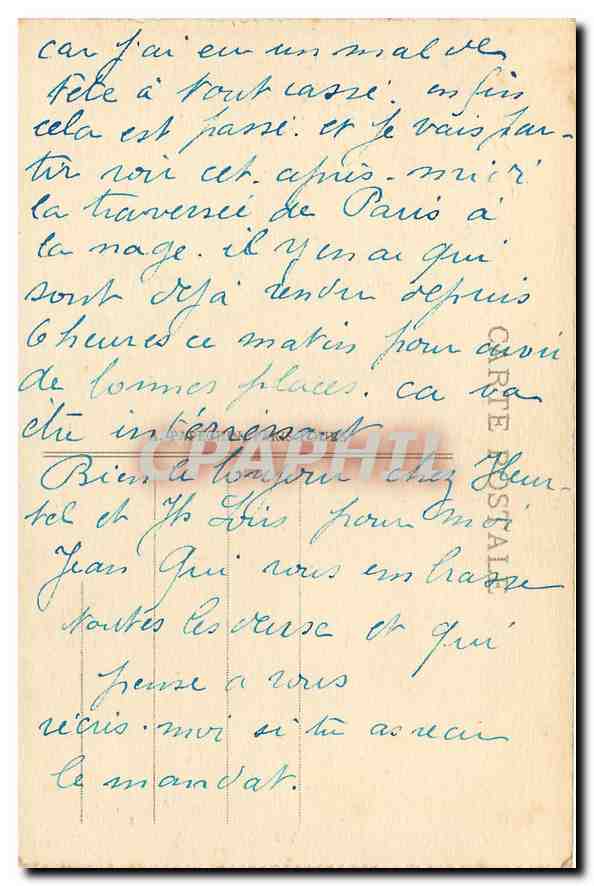 car j'ai eu un mal de
tête à tout cassé. enfin
cela est passé. et je vais par-
tir voir cet-après-midi
la traversée de Paris à
la nage. il y en a qui
sont déjà rendu depuis
6 heures ce matin pour avoir
de bonnes places. ca va
être intérressant
Bien le bonjour chez Heur-
tel et
Lois pour moi
Jean qui vous embrasse
toutes les deux et qui
pense a vous
récris-moi si tu as recu
le mandat.
CARTE POSTALE
CPAPHIL